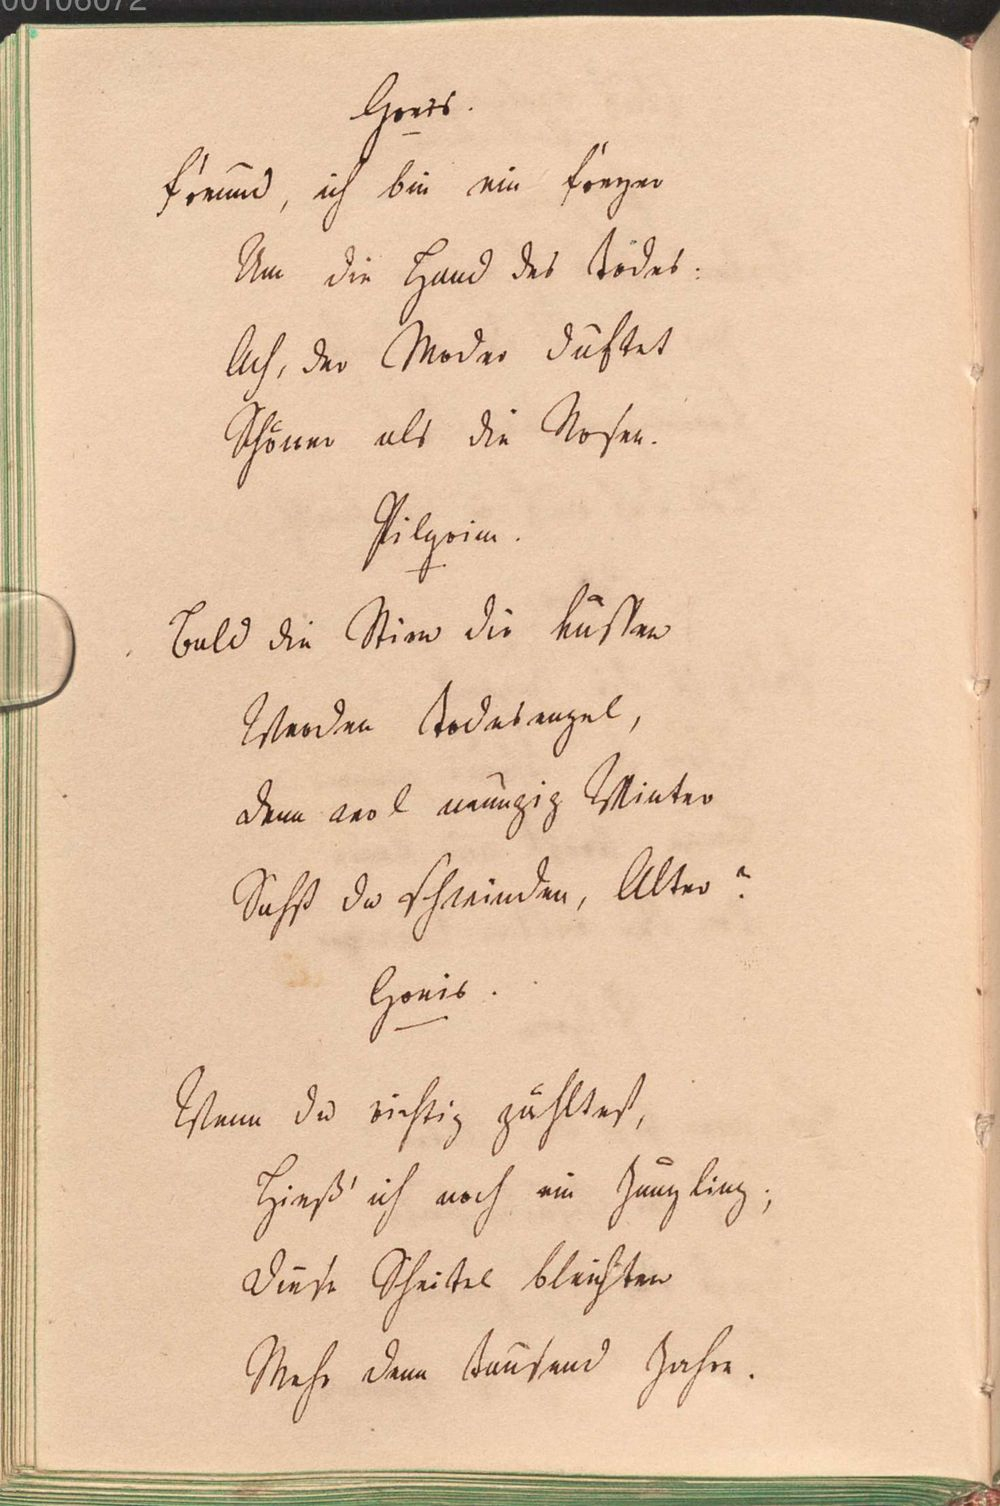 00106072
Greis.
Freund, ich bin ein Freyer
Um die Hand des Todes:
Ach, der Moder duftet
Schöner als die Rosen.
Pilgrim.
Bald die Stirn dir küssen
Werden Todesengel,
Denn wol neunzig Winter
Sahst du schwinden, Alter?
Greis.
Wenn du richtig zähltest,
Hieß' ich noch ein Jüngling;
Diese Scheitel bleichten
Mehr denn tausend Jahre.